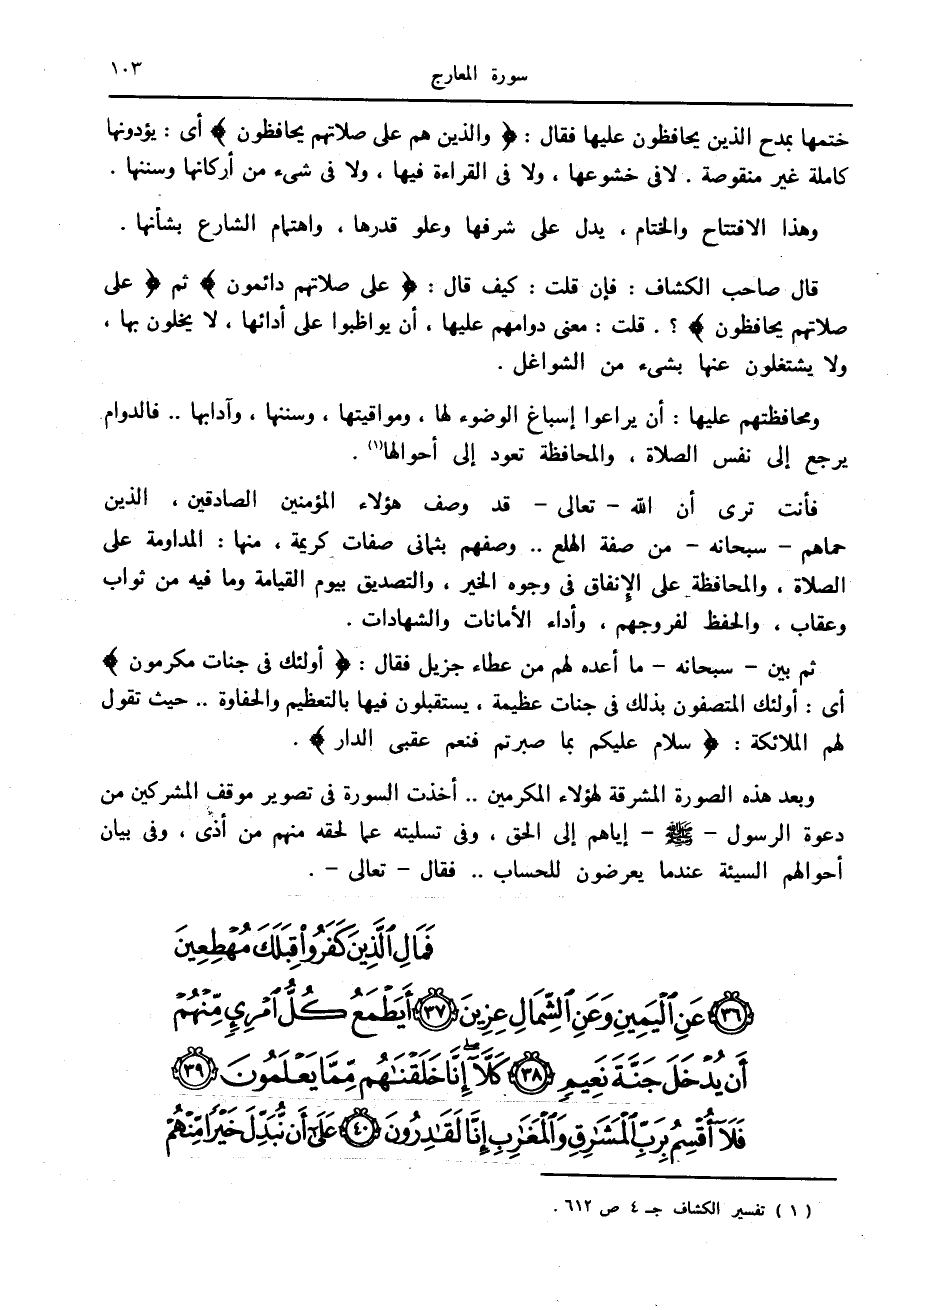 سورة المعارج
١٠٣
ختمها بمدح الذين يحافظون عليها فقال : ﴿ والذين هم على صلاتهم يحافظون ﴾ أى : يؤدونها
كاملة غير منقوصة . لافى خشوعها ، ولا فى القراءة فيها ، ولا فى شىء من أركانها وسننها .
وهذا الافتتاح والختام ، يدل على شرفها وعلو قدرها ، واهتمام الشارع بشأنها .
قال صاحب الكشاف : فإن قلت : كيف قال : ﴿ على صلاتهم دائمون ﴾ ثم ﴿ على
صلاتهم يحافظون ﴾ ؟ . قلت : معنى دوامهم عليها ، أن يواظبوا على أدائها ، لا يخلون بها ،
ولا يشتغلون عنها بشىء من الشواغل .
ومحافظتهم عليها : أن يراعوا إسباغ الوضوء لها ، ومواقيتها ، وسننها ، وآدابها .. فالدوام
يرجع إلى نفس الصلاة ، والمحافظة تعود إلى أحوالها(١) .
فأنت ترى أن الله – تعالى – قد وصف هؤلاء المؤمنين الصادقين ، الذين
حماهم – سبحانه – من صفة الهلع .. وصفهم بثمانى صفات كريمة ، منها : المداومة على
الصلاة ، والمحافظة على الإنفاق فى وجوه الخير ، والتصديق بيوم القيامة وما فيه من ثواب
وعقاب ، والحفظ لفروجهم ، وأداء الأمانات والشهادات .
ثم بين – سبحانه – ما أعده لهم من عطاء جزيل فقال : ﴿ أولئك فى جنات مكرمون ﴾
أى : أولئك المتصفون بذلك فى جنات عظيمة ، يستقبلون فيها بالتعظيم والحفاوة .. حيث تقول
لهم الملائكة : ﴿ سلام عليكم بما صبرتم فنعم عقبى الدار ﴾ .
وبعد هذه الصورة المشرقة لهؤلاء المكرمين .. أخذت السورة فى تصوير موقف المشركين من
دعوة الرسول – ﷺ – إياهم إلى الحق ، وفى تسليته عما لحقه منهم من أذى ، وفى بيان
أحوالهم السيئة عندما يعرضون للحساب .. فقال – تعالى – .
فَمَالِ ٱلَّذِينَ كَفَرُوا۟ قِبَلَكَ مُهْطِعِينَ
﴿٣٦﴾ عَنِ ٱلْيَمِينِ وَعَنِ ٱلشِّمَالِ عِزِينَ ﴿٣٧﴾ أَيَطْمَعُ كُلُّ ٱمْرِئٍ مِّنْهُمْ
أَن يُدْخَلَ جَنَّةَ نَعِيمٍ ﴿٣٨﴾ كَلَّآ ۖ إِنَّا خَلَقْنَـٰهُم مِّمَّا يَعْلَمُونَ ﴿٣٩﴾
فَلَآ أُقْسِمُ بِرَبِّ ٱلْمَشَـٰرِقِ وَٱلْمَغَـٰرِبِ إِنَّا لَقَـٰدِرُونَ ﴿٤٠﴾ عَلَىٰٓ أَن نُّبَدِّلَ خَيْرًا مِّنْهُمْ
( ١ ) تفسير الكشاف جـ ٤ ص ٦١٢ .